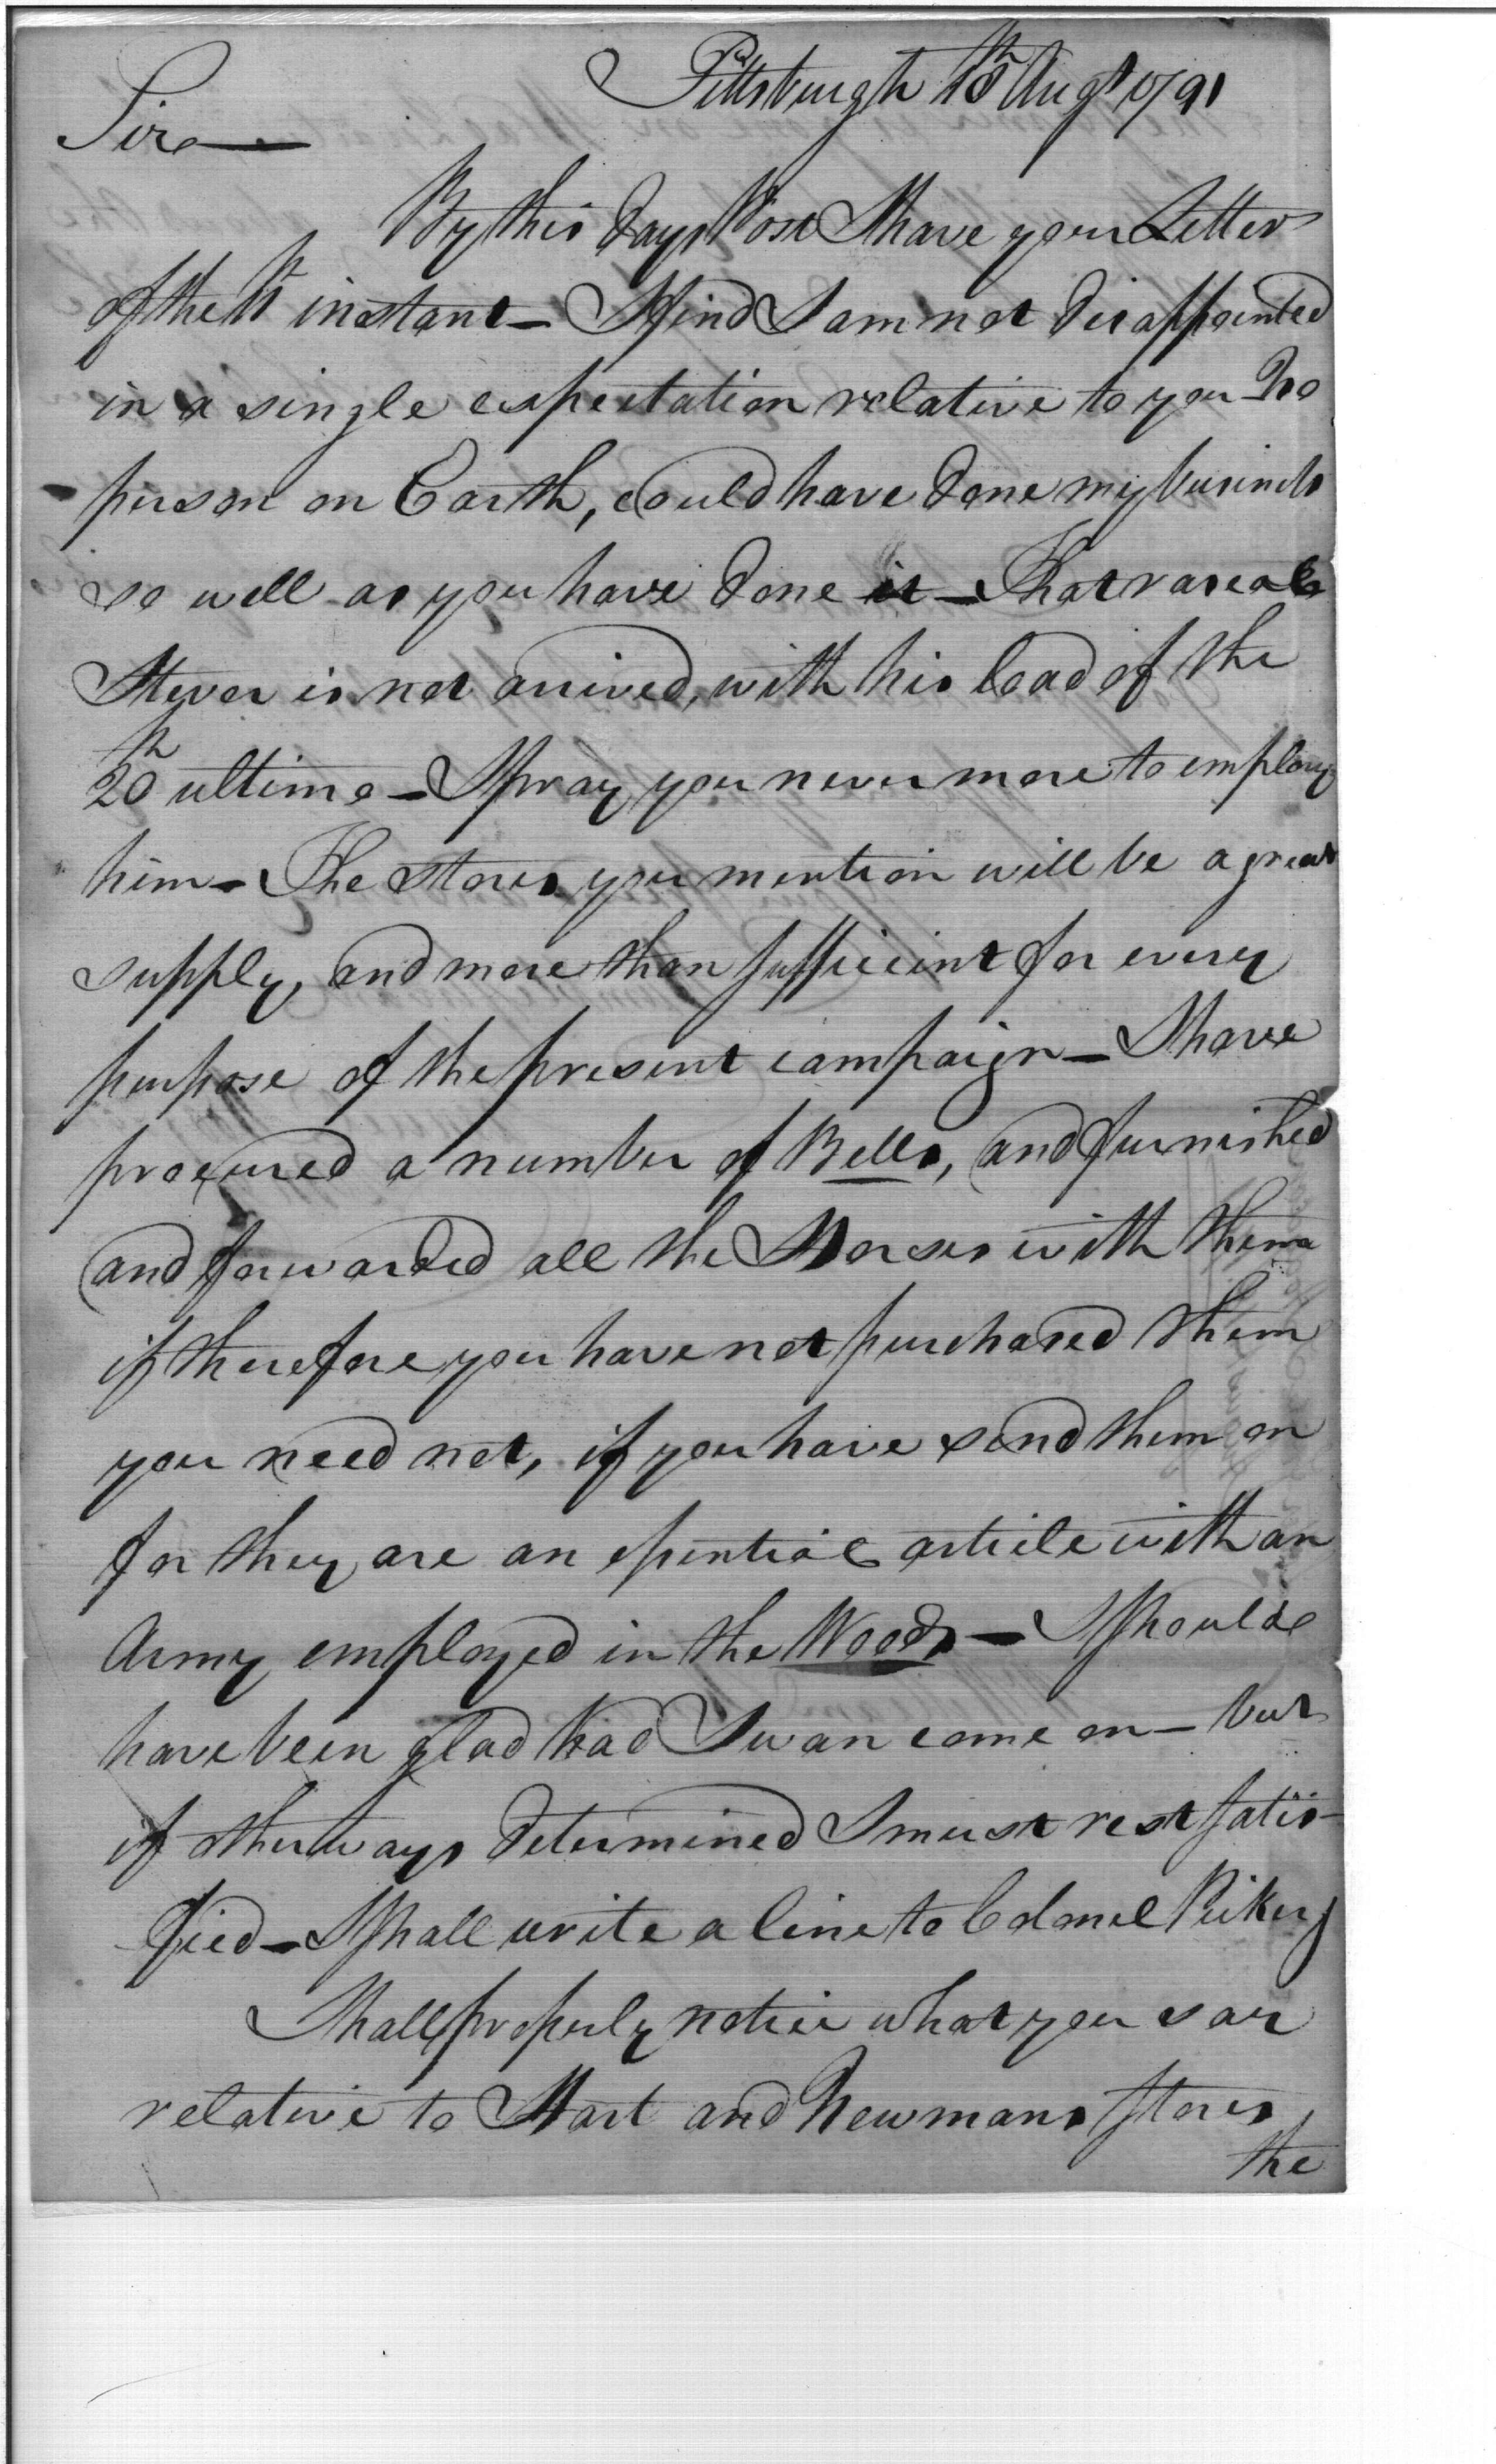 Pittsburgh 18th Augt 1791
Sir
By this days Post I have your Letter
of the instant — I find I am not disappointed
in a single expectation relative to you No
person on Earth, could have done my business
so well as you have done it — That rascal
Stever is not arrived, with his load of the
20th ultimo — I pray you never more to employ
him — The Stores you mention will be a great
supply, and more than sufficient for every
purpose of the present campaign — I have
procured a number of Bells, and furnished
and forwarded all the Horses with them
if therefore you have not purchased them
you need not, if you have send them on
for they are an essential article with an
Army employed in the Woods — I should
have been glad had Swan come on — but
if otherways determined I must rest satis-
fied — I shall write a line to Colonel Pikery
Shall properly notice what you say
relative to Hart and Newmans Stores,
the